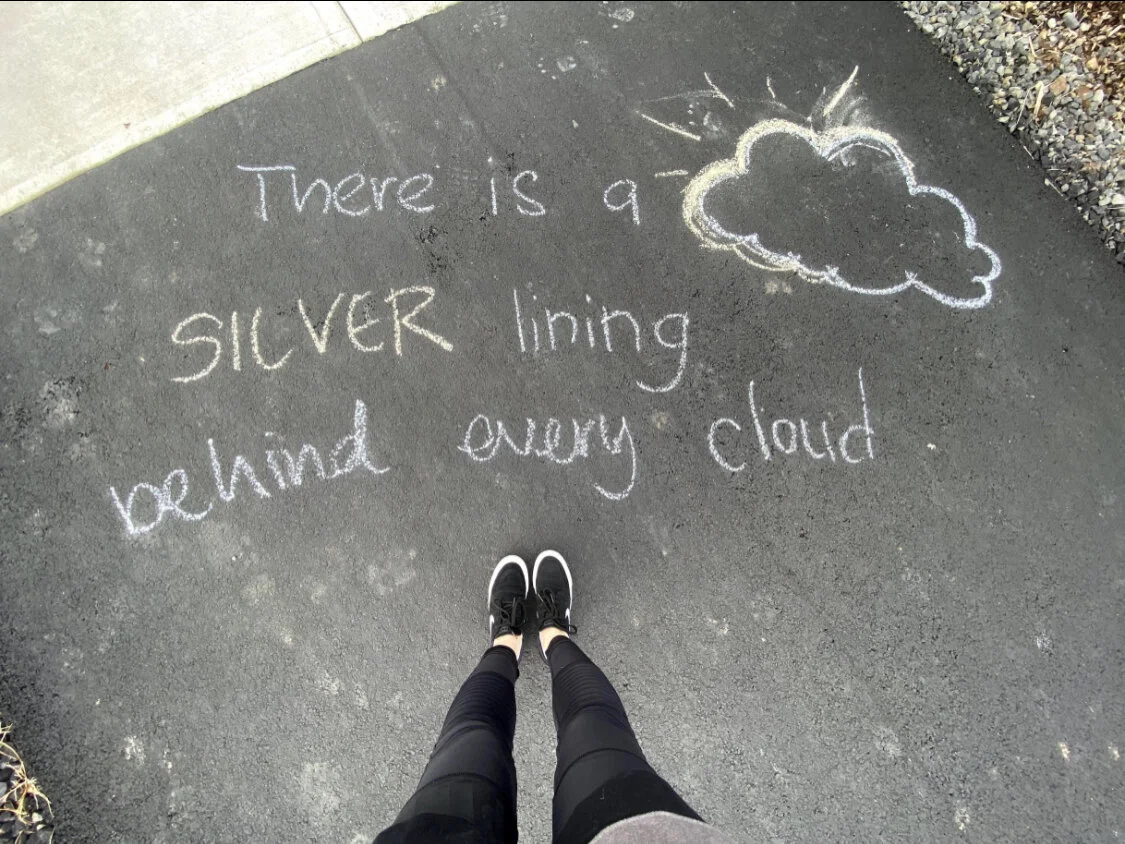 There is a
SILVER lining
behind every cloud